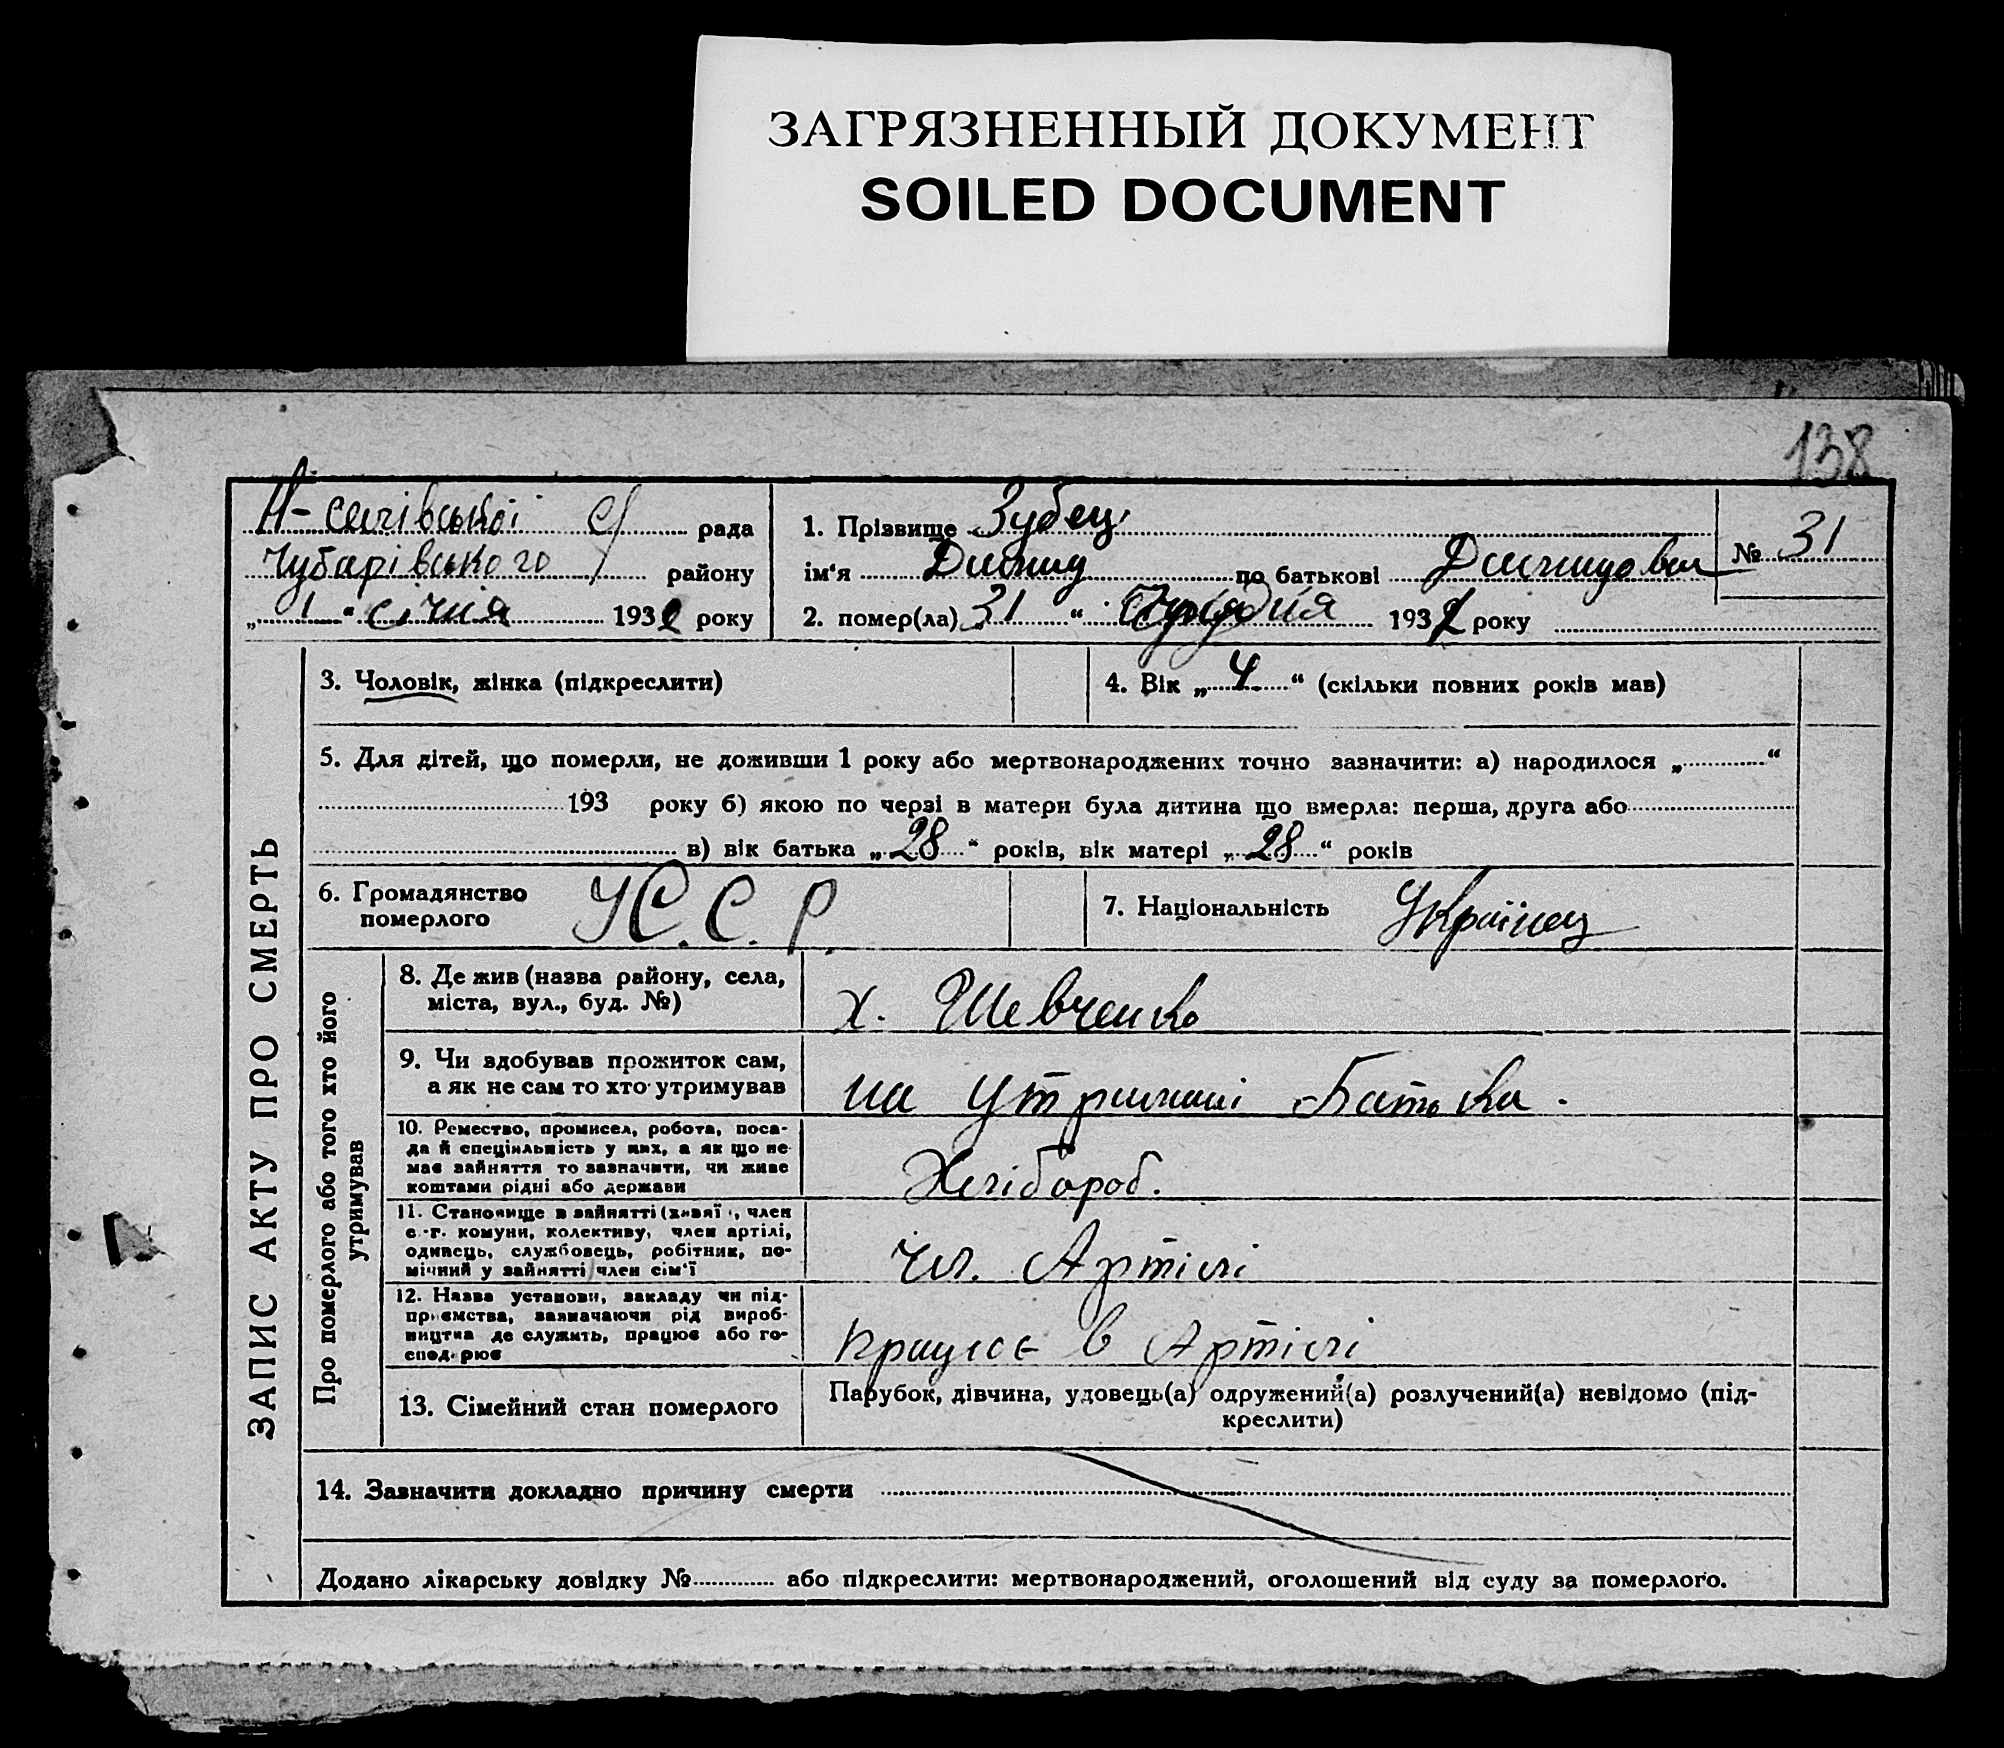 ЗАГРЯЗНЕННЫЙ ДОКУМЕНТ
SOILED DOCUMENT
138
рада
Чубарівського району
„ 1 “ січня 193 року
1. Прізвище Зубец
ім‘я по батькові
№ 31
2. помер(ла) „ 31 “ Грудня 193 року
ЗАПИС АКТУ ПРО СМЕРТЬ
3. Чоловік, жінка (підкреслити)
4. Вік „ 4 “ (скільки повних років мав)
5. Для дітей, що померли, не доживши 1 року або мертвонароджених точно зазначити: а) народилося „ “
193 року б) якою по черзі в матери була дитина що вмерла: перша, друга або
в) вік батька „ 28 “ років, вік матері „ 28 “ років
6. Громадянство
померлого
У.С.С.Р.
7. Національність Українец
Про померлого або того хто його
утримував
8. Де жив (назва району, села,
міста, вул., буд. №)
х. Шевченко
9. Чи здобував прожиток сам,
а як не сам то хто утримував
на утримані Батька.
10. Ремество, промисел, робота, поса-
да й спеціяльність у них, а як що не
має зайняття то зазначити, чи живе
коштами рідні або держави
Хлібороб.
11. Становище в зайнятті член
с.-г. комуни, колективу, член артілі,
одинець, службовець, робітник, по-
мічний у зайнятті член сім‘ї
Чл. Артілі
12. Назва установи, закладу чи під-
приємства, зазначаючи рід вироб-
ництва де служить, працює або го-
сподарює
Працює в Артілі
13. Сімейний стан померлого
Парубок, дівчина, удовець(а) одружений(а) розлучений(а) невідомо (під-
креслити)
14. Зазначити докладно причину смерти
Додано лікарську довідку № або підкреслити: мертвонароджений, оголошений від суду за померлого.